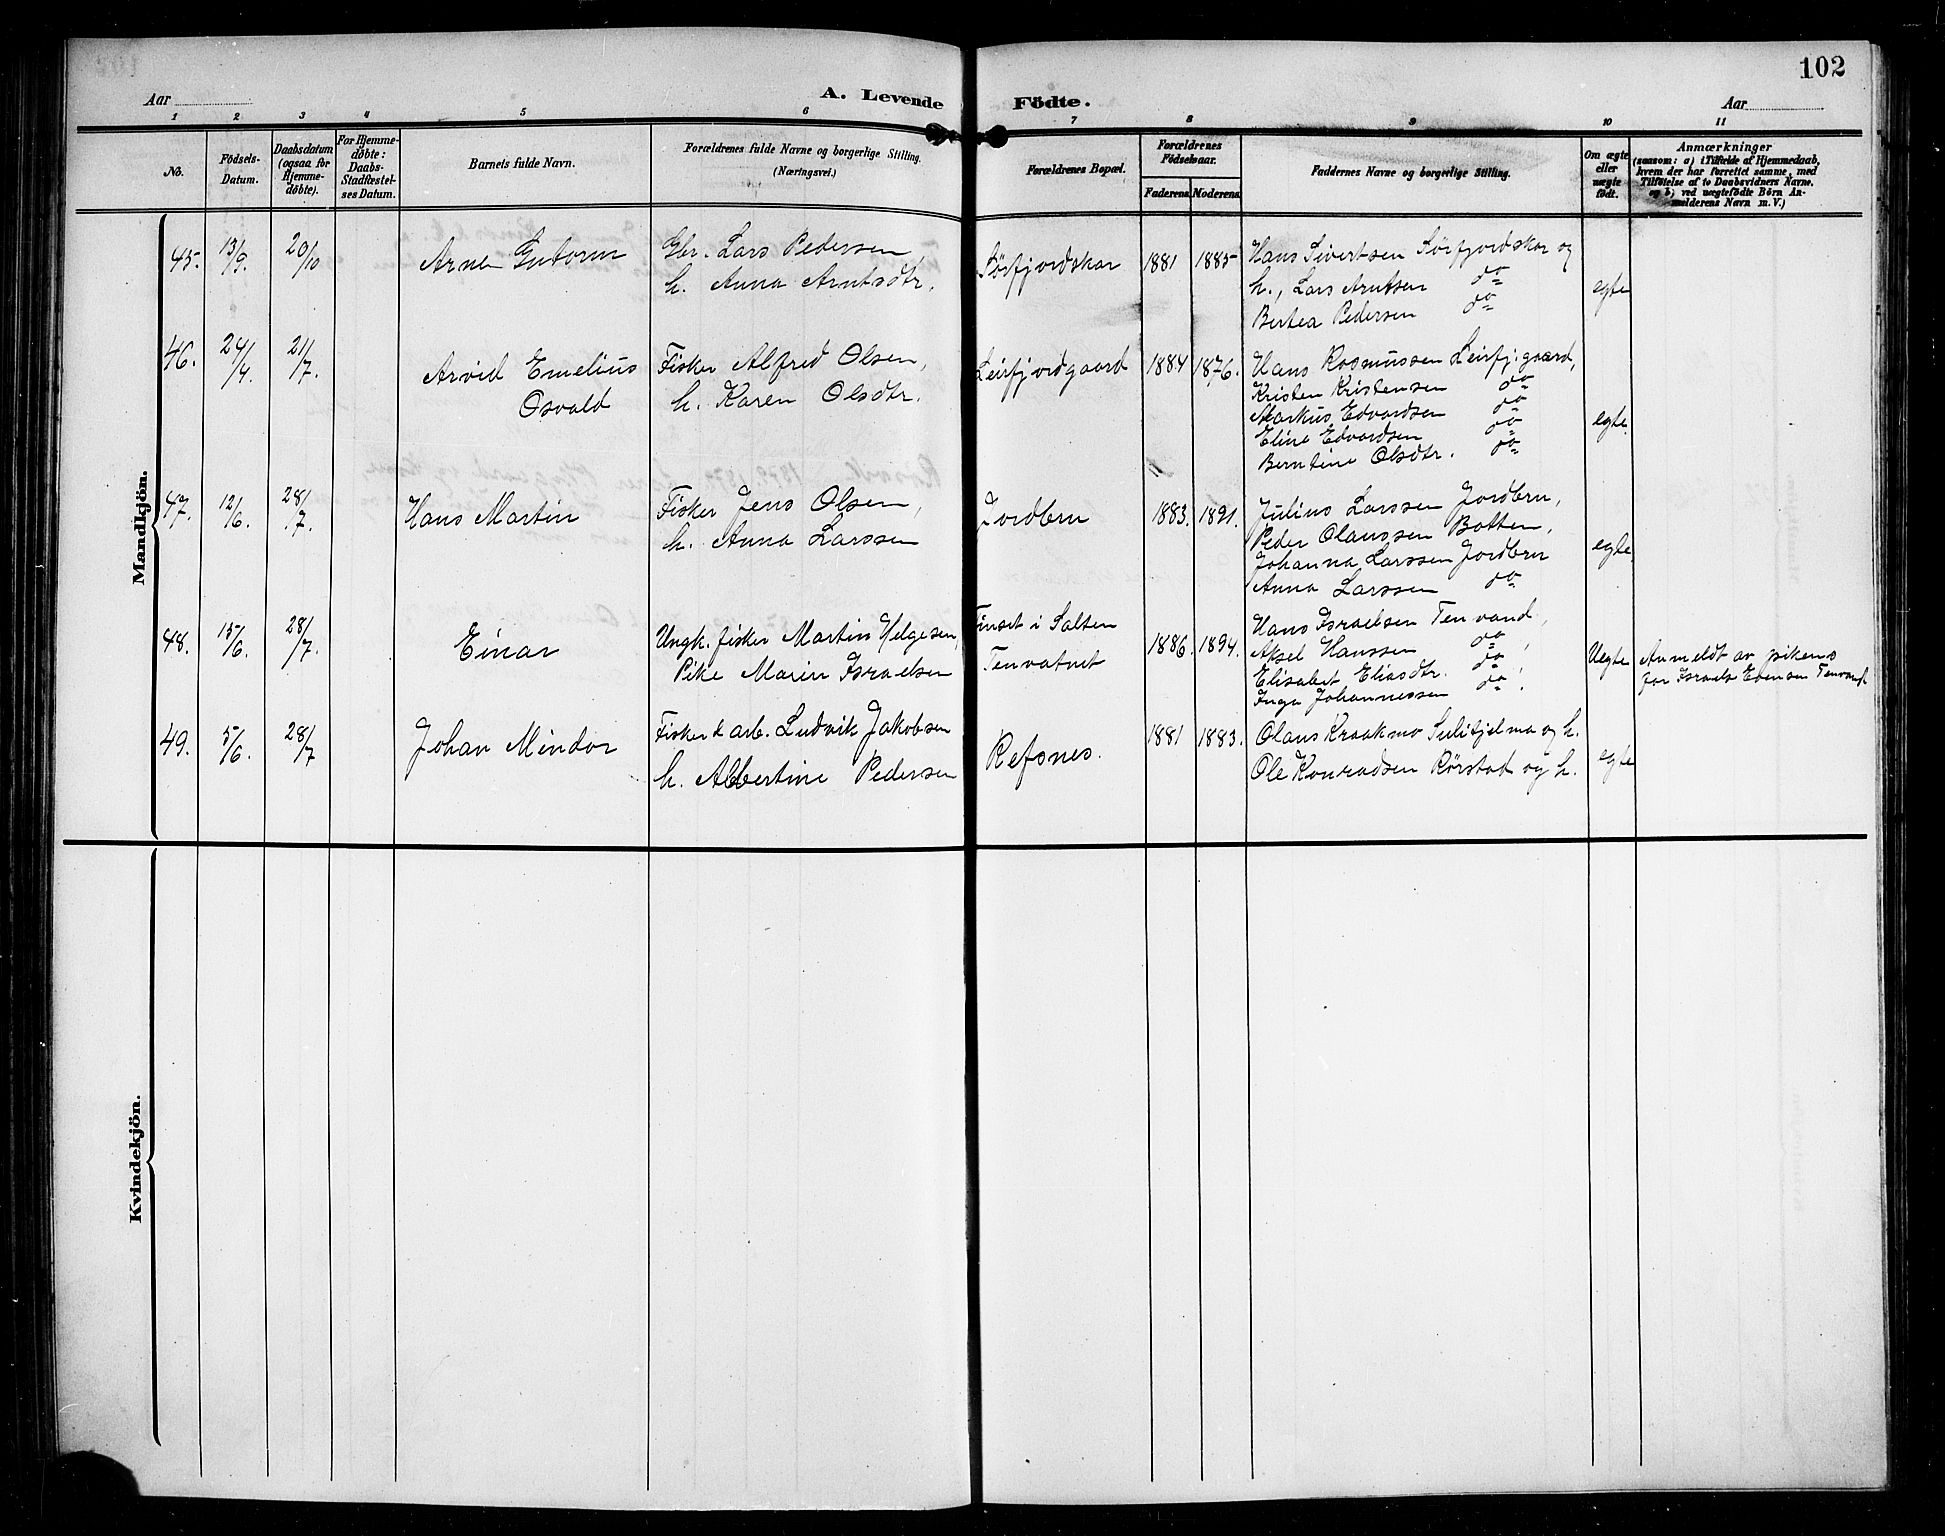 102
Aar
A. Levende Födte.
Aar
1 2 3 4 5 6 7 8 9 10 11
No.
Födsels-
Datum.
Daabsdatum
(ogsaa for
Hjemme-
döbte).
For Hjemme-
döbte:
Daabs-
Stadfæstel-
ses Datum.
Barnets fulde Navn.
Forældrenes fulde Navne og borgerlige Stilling.
(Næringsvei.)
Forældrenes Bopæl.
Forældrenes
Födselsaar.
Faderens. Moderens.
Faddernes Navne og borgerlige Stilling.
Om ægte
eller
uægte
födt.
Anmærkninger
(saasom: a) i Tilfælde af Hjemmedaab,
hvem der har forrettet samme, med
Tilföielse af to Daabsvidners Navne,
og b) ved uægtefödte Börn An-
melderens Navn m. V.)
Mandkjön.
45. 13/9. 20/10 Arne Gutorm
Gbr. Lars Pedersen
h. Anna Arntsdtr.
Sørfjordskar 1881 1885
Hans Sivertsen Sørfjordskar og
h., Lars Arntsen do
Bertea Pedersen do
egte
46. 24/4. 21/7. Arvid Emelius
Osvald
Fisker Alfred Olsen,
h. Karen Olsdtr.
Leirfjordgaard 1884 1876.
Hans Rasmussen Leirfj.gaard,
Kristen Kristensen do
Markus Edvardsen do
Eline Edvardsen do
Berntine Olsdtr. do
egte.
47. 12/6. 28/7. Hans Martin
Fisker Jens Olsen,
h. Anna Larssen
Jordbru 1883. 1891.
Julius Larssen Jordbru,
Peder Olaussen Botten,
Johanna Larssen Jordbru
Anna Larssen do
egte.
48. 15/6. 28/7. Einar
Ungk. fisker Martin Helgesen,
Pike Marin Israelsen
Finset i Salten
Tenvatnet
1886. 1894.
Hans Israelsen Tenvand,
Aksel Hanssen do,
Elisabet Eliasdtr. do,
Inga Johannessen do.
Uegte
Anmeldt av pikens
far Israel Evensen Tenvand
49. 5/6. 28/7 Johan Mindor
Fisker & arb. Ludvik Jakobsen
h. Albertine Pedersen
Refsnes. 1881 1883.
Olaus Kraakmo Sulitjelma og h.
Ole Konradsen Rørstad og h.
egte
Kvindekjön.